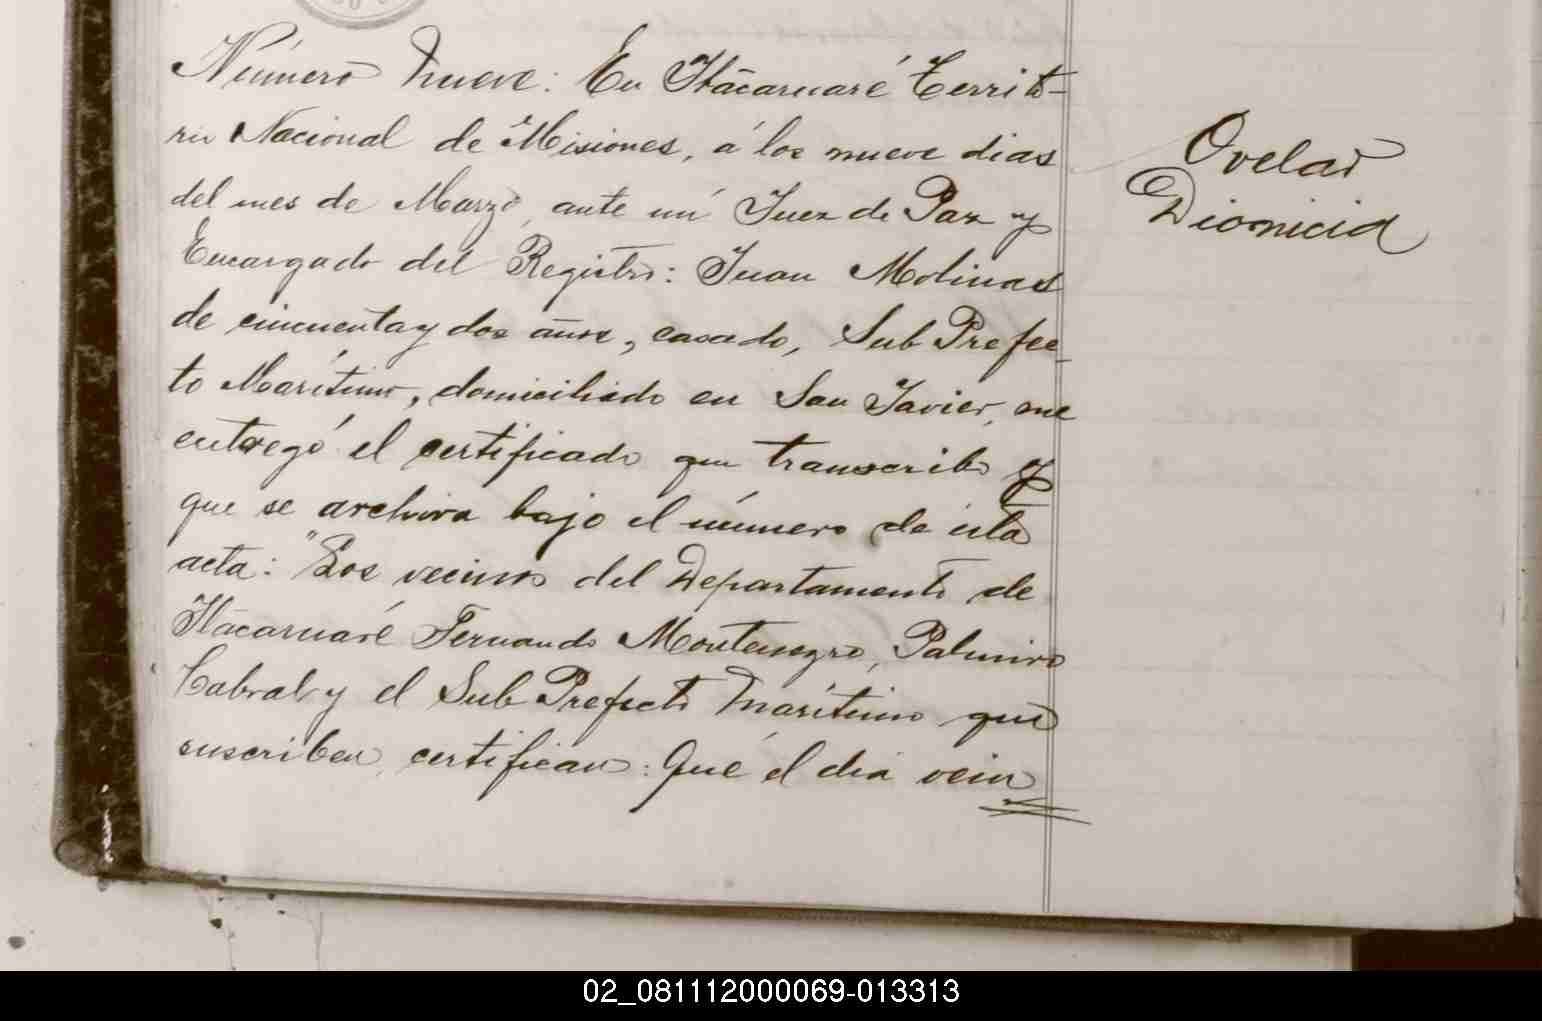 Número nueve: En Itacaruaré Territo-
rio Nacional de Misiones, á los nueve dias
del mes de Marzo, ante mi Juez de Paz y
Encargado del Registro: Juan Molinas
de cincuenta y dos años, casado, Sub Prefec-
to Maritimo, domiciliado en San Javier, me
entregó el certificado que transcribo y
que se archiva bajo el número de ésta
acta: "Los vecinos del Departamento de
Itacaruaré Fernando Montenegro, Palmiro
Cabral y el Sub Prefecto Marítimo que
suscriben, certifican: Que el dia vein
Ovelar
Dionicia
02_081112000069-013313